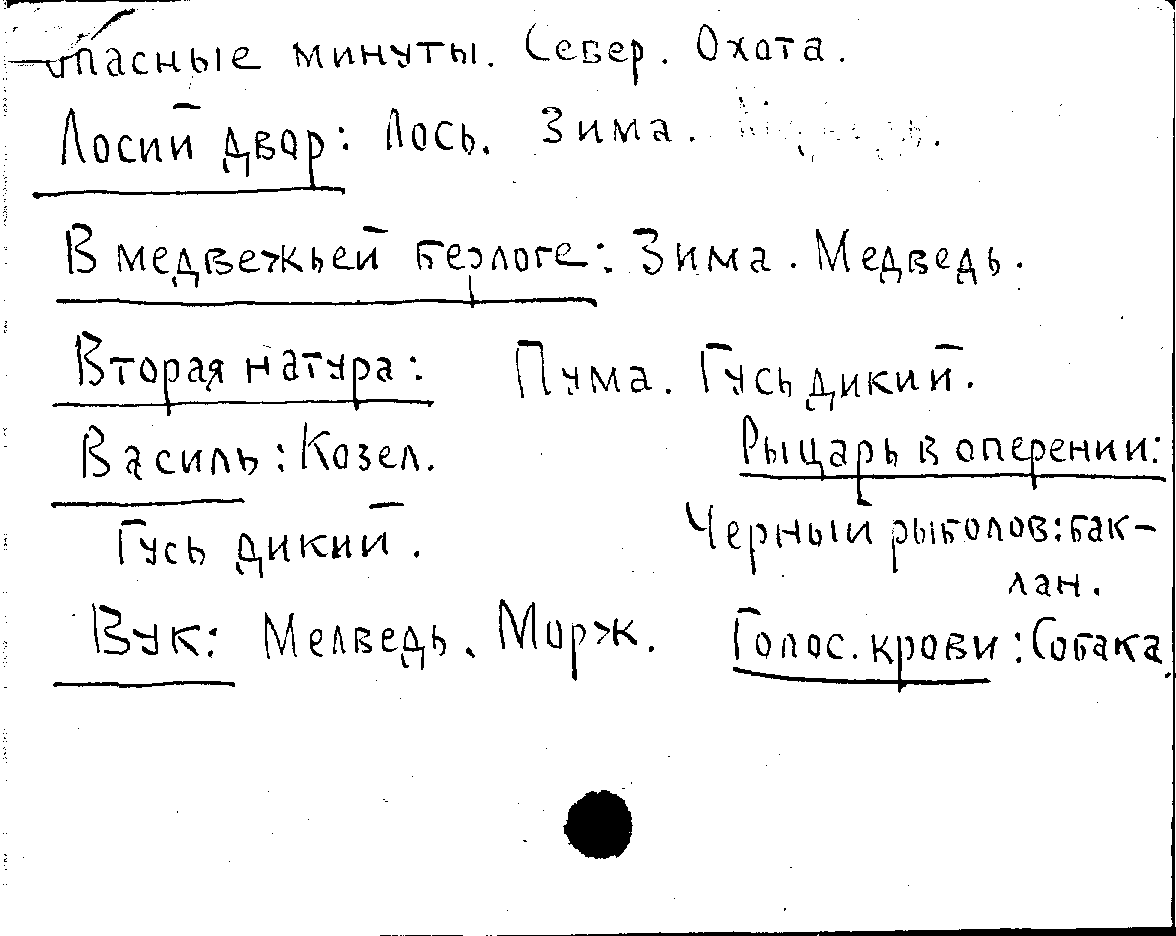 опасные минуты. Север. Охота.
Лосий двор: Лось. Зима.
В медвежьей берлоге: Зима. Медведь.
Вторая натура: Пума. Гусь дикий.
Василь: Козел.
Гусь дикий.
Рыцарь в оперении:
Черный рыболов: бак-
лан.
Вук: Медведь. Морж.
Голос. крови: Собака.